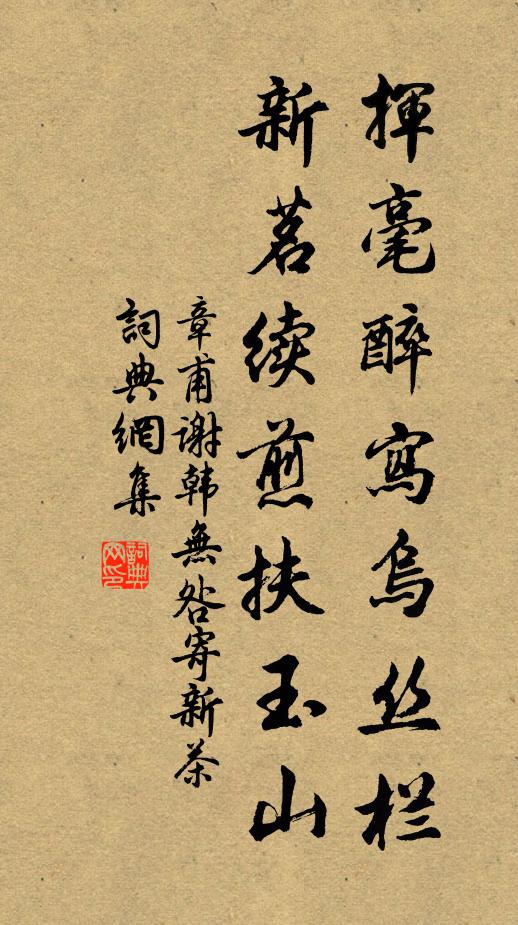 揮毫醉寫烏丝栏
新茗续煎扶玉山
章甫谢韩無咎寄新茶
詞典網集
詞典網印